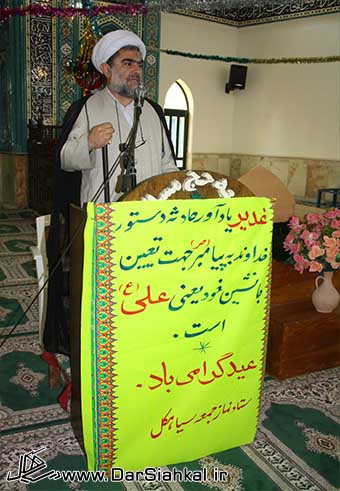 غدیر یادآور حادثه دستور
خداوند به پیامبر (ص) جهت تعیین
جانشین خود یعنی علی (ع)
است .
عید گرامی باد .
ستاد نماز جمعه سیاهکل
www.DarSiahkal.ir